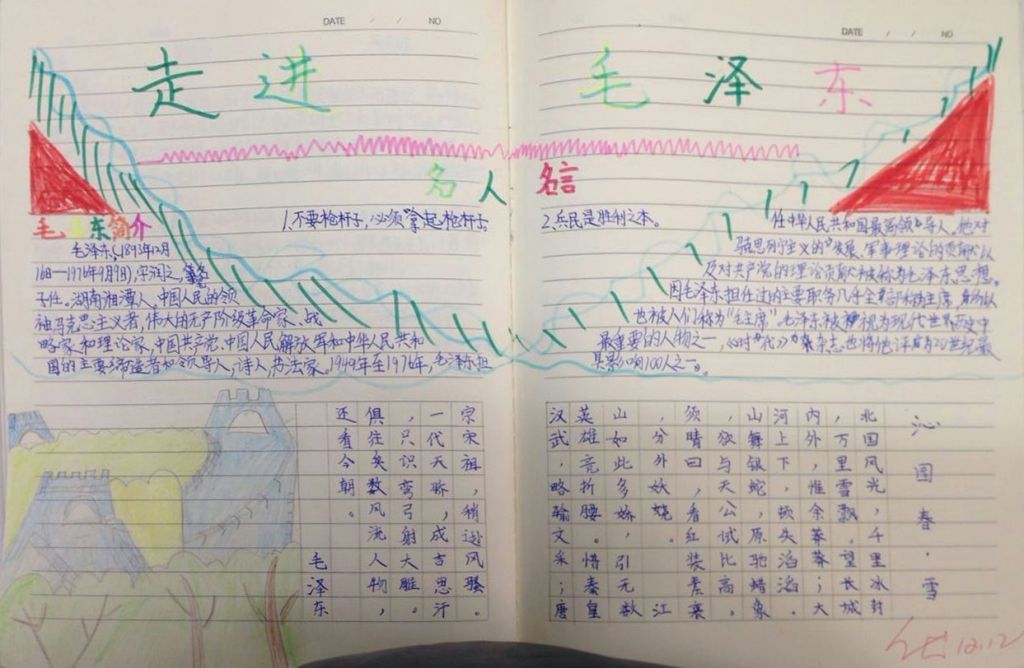 DATE / / NO
DATE / / NO
走进 毛泽东
名人名言
1.不要枪杆子,必须拿起枪杆子
2.兵民是胜利之本。
毛泽东简介
毛泽东,1893年12月
26日—1976年9月9日),字润之,笔名
子任。湖南湘潭人。中国人民的领
袖马克思主义者,伟大的无产阶级革命家、战
略家和理论家,中国共产党、中国人民解放军和中华人民共和
国的主要缔造者和领导人,诗人,书法家。1949年至1976年,毛泽东担
任中华人民共和国最高领导人。他对
马克思列宁主义的发展、军事理论的贡献以
及对共产党的理论贡献被称为毛泽东思想。
因毛泽东担任过的主要职务几乎全部称为主席,所以
也被人们称为“毛主席”。毛泽东被视为现代世界历史中
最重要的人物之一,《时代》杂志也将他评为20世纪最
具影响100人之一。
沁园春·雪
北国风光,千里冰封
,万里雪飘。望长城
内外,惟余莽莽;大
河上下,顿失滔滔。
山舞银蛇,原驰蜡象
,欲与天公试比高。
须晴日,看红装素裹
,分外妖娆。江
山如此多娇,引无数
英雄竞折腰。惜秦皇
汉武,略输文采;唐
宗宋祖,稍逊风骚。
一代天骄,成吉思汗
,只识弯弓射大雕。
俱往矣,数风流人物,
还看今朝。
毛泽东
12.12